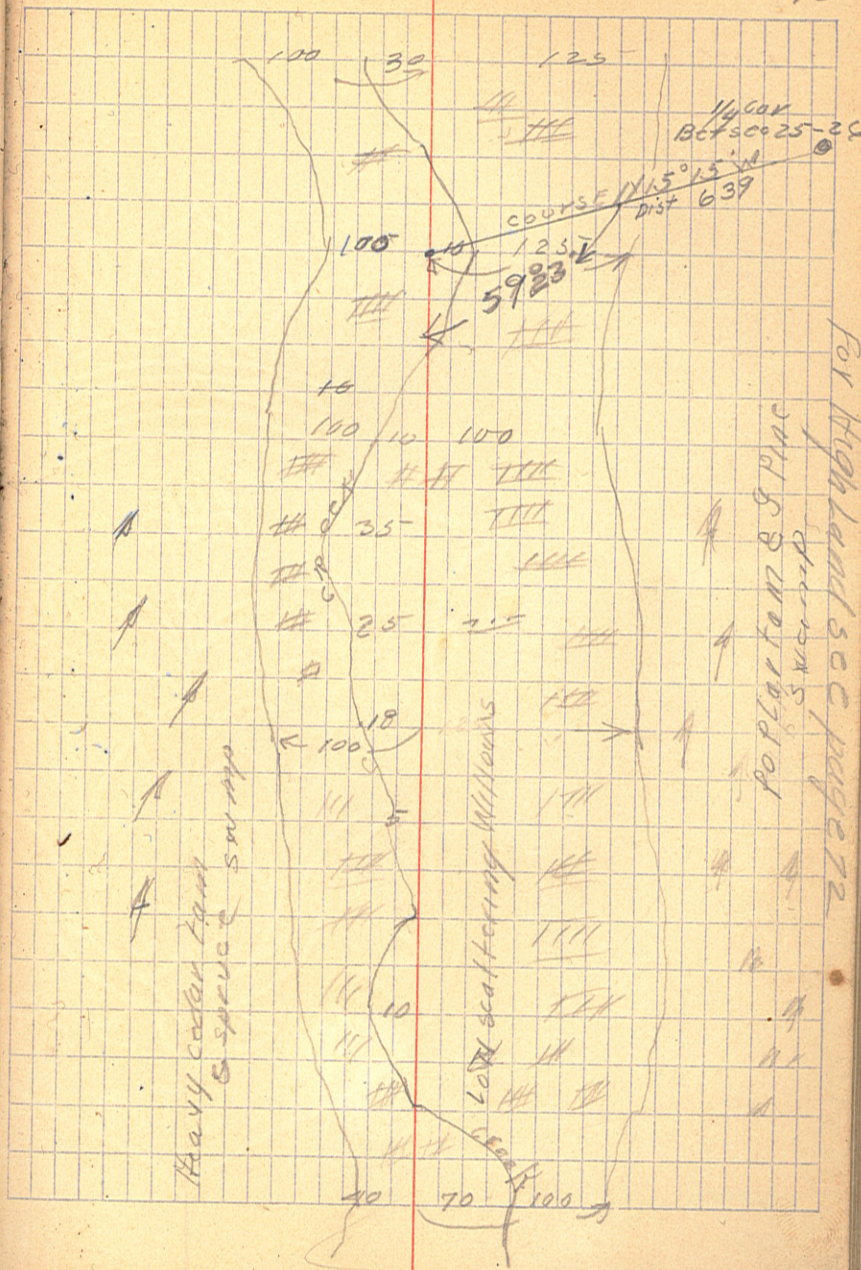 100 30 125
1/4 Cor
Bet sec 25-26
COURSE N 15° 15' W
Dist 639
100 10 125
5923
10
100 10 100
35
CREEK
25
18
100
5
Heavy cedar tam
& spruce swamp
Low scattering Willows
Poplar tam & J Pine
swamp
For Highland see page 72
10
CREEK
40 70 100